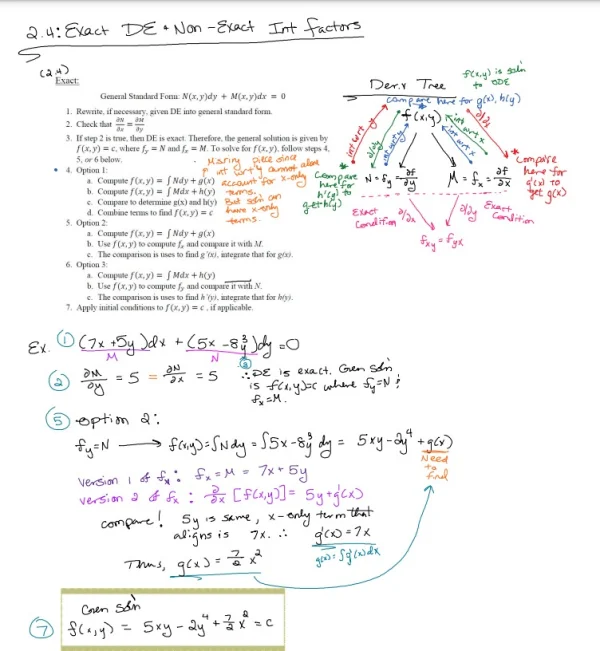 2.4: Exact DE + Non-Exact Int Factors
(2.4)
Exact:
General Standard Form: N(x,y)dy + M(x,y)dx = 0
1. Rewrite, if necessary, given DE into general standard form.
2. Check that ∂N/∂x = ∂M/∂y
3. If step 2 is true, then DE is exact. Therefore, the general solution is given by
f(x,y) = c, where f_y = N and f_x = M. To solve for f(x,y), follow steps 4,
5, or 6 below.
4. Option 1:
a. Compute f(x,y) = ∫ Ndy + g(x)
b. Compute f(x,y) = ∫ Mdx + h(y)
c. Compare to determine g(x) and h(y)
d. Combine terms to find f(x,y) = c
Missing piece since
int wrt y cannot alone
account for x-only
terms.
But soln can
have x-only
terms.
5. Option 2:
a. Compute f(x,y) = ∫ Ndy + g(x)
b. Use f(x,y) to compute f_x and compare it with M.
c. The comparison is used to find g'(x), integrate that for g(x).
6. Option 3:
a. Compute f(x,y) = ∫ Mdx + h(y)
b. Use f(x,y) to compute f_y and compare it with N.
c. The comparison is used to find h'(y), integrate that for h(y).
7. Apply initial conditions to f(x,y) = c, if applicable.
Deriv Tree
f(x,y) is soln
to ODE
compare here for g(x), h(y)
f(x,y)
int wrt y
∂/∂y
int wrt y
int wrt x
int wrt x
∂/∂x
Compare
here for
h'(y) to
get h(y)
N = f_y = ∂f/∂y
M = f_x = ∂f/∂x
Compare
here for
g'(x) to
get g(x)
Exact
Condition ∂/∂x
∂/∂y Exact
Condition
f_xy = f_yx
Ex. ① (7x + 5y)dx + (5x - 8y³)dy = 0
M
N
② ∂M/∂y = 5 = ∂N/∂x = 5
③ ∴ DE is exact. Gen soln
is f(x,y)=c where f_y=N &
f_x=M.
⑤ option 2:
f_y=N → f(x,y)=∫Ndy = ∫5x-8y³dy = 5xy-2y⁴ + g(x)
Need
to
find
Version 1 of f_x: f_x = M = 7x + 5y
version 2 of f_x: ∂/∂x [f(x,y)] = 5y + g'(x)
compare! 5y is same, x-only term that
aligns is 7x. ∴ g'(x) = 7x
g(x) = ∫g'(x)dx
Thus, g(x) = 7/2 x²
Gen soln
⑦ f(x,y) = 5xy - 2y⁴ + 7/2 x² = c